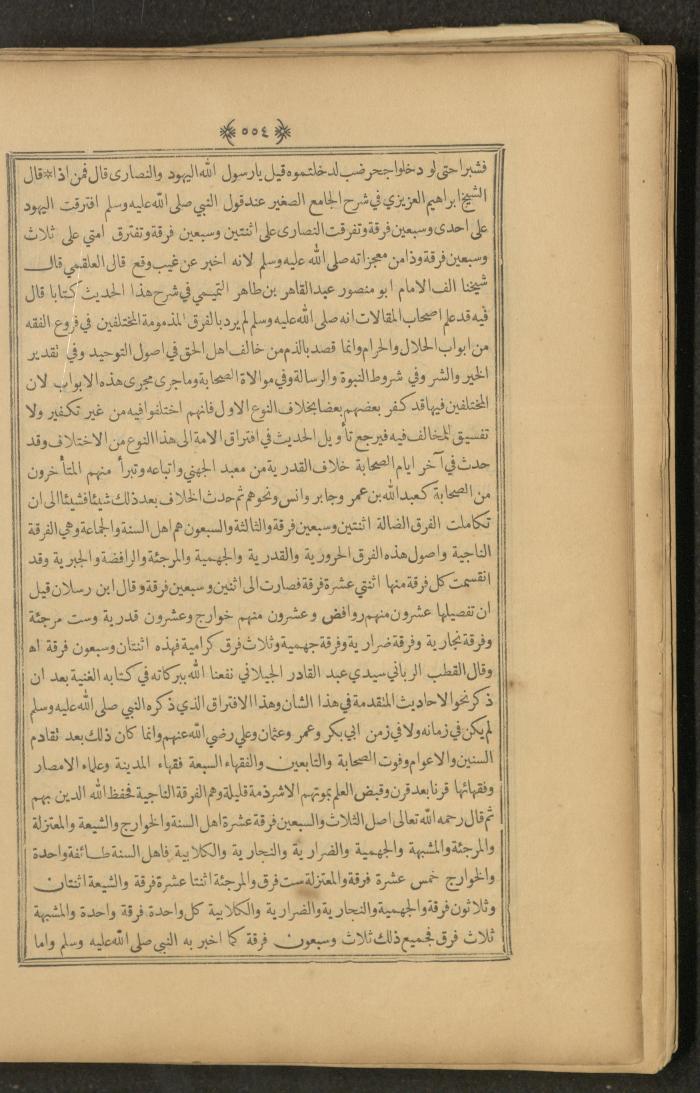 ﴿ ٥٥٤ ﴾
فشبرا حتى لو دخلوا جحر ضب لدخلتموه قيل يا رسول الله اليهود والنصارى قال فمن اذا * قال
الشيخ ابراهيم العزيزي في شرح الجامع الصغير عند قول النبي صلى الله عليه وسلم افترقت اليهود
على احدى وسبعين فرقة وتفرقت النصارى على اثنتين وسبعين فرقة وتفترق امتي على ثلاث
وسبعين فرقة وذا من معجزاته صلى الله عليه وسلم لانه اخبر عن غيب وقع قال العلقمي قال
شيخنا الف الامام ابو منصور عبد القاهر بن طاهر التميمي في شرح هذا الحديث كتابا قال
فيه قد علم اصحاب المقالات انه صلى الله عليه وسلم لم يرد بالفرق المذمومة المختلفين في فروع الفقه
من ابواب الحلال والحرام وانما قصد بالذم من خالف اهل الحق في اصول التوحيد وفي تقدير
الخير والشر وفي شروط النبوة والرسالة وفي موالاة الصحابة وما جرى مجرى هذه الابواب لان
المختلفين فيها قد كفر بعضهم بعضا بخلاف النوع الاول فانهم اختلفوا فيه من غير تكفير ولا
تفسيق للمخالف فيه فيرجع تأويل الحديث في افتراق الامة الى هذا النوع من الاختلاف وقد
حدث في آخر ايام الصحابة خلاف القدرية من معبد الجهني واتباعه وتبرأ منهم المتأخرون
من الصحابة كعبد الله بن عمر وجابر وانس ونحوهم ثم حدث الخلاف بعد ذلك شيئا فشيئا الى ان
تكاملت الفرق الضالة اثنتين وسبعين فرقة والثالثة والسبعون هم اهل السنة والجماعة وهي الفرقة
الناجية واصول هذه الفرق الحرورية والقدرية والجهمية والمرجئة والرافضة والجبرية وقد
انقسمت كل فرقة منها اثنتي عشرة فرقة فصارت الى اثنين وسبعين فرقة وقال ابن رسلان قيل
ان تفصيلها عشرون منهم روافض وعشرون منهم خوارج وعشرون قدرية وست مرجئة
وفرقة نجارية وفرقة ضرارية وفرقة جهمية وثلاث فرق كرامية فهذه اثنتان وسبعون فرقة اه
وقال القطب الرباني سيدي عبد القادر الجيلاني نفعنا الله ببركاته في كتابه الغنية بعد ان
ذكر نحو الاحاديث المتقدمة في هذا الشان وهذا الافتراق الذي ذكره النبي صلى الله عليه وسلم
لم يكن في زمانه ولا في زمن ابي بكر وعمر وعثمان وعلي رضي الله عنهم وانما كان ذلك بعد تقادم
السنين والاعوام وفوت الصحابة والتابعين والفقهاء السبعة فقهاء المدينة وعلماء الامصار
وفقهائها قرنا بعد قرن وقبض العلم بموتهم الا شرذمة قليلة وهم الفرقة الناجية فحفظ الله الدين بهم
ثم قال رحمه الله تعالى اصل الثلاث والسبعين فرقة عشرة اهل السنة والخوارج والشيعة والمعتزلة
والمرجئة والمشبهة والجهمية والضرارية والنجارية والكلابية فاهل السنة طائفة واحدة
والخوارج خمس عشرة فرقة والمعتزلة ست فرق والمرجئة اثنتا عشرة فرقة والشيعة اثنتان
وثلاثون فرقة والجهمية والنجارية والضرارية والكلابية كل واحدة فرقة واحدة والمشبهة
ثلاث فرق فجميع ذلك ثلاث وسبعون فرقة كما اخبر به النبي صلى الله عليه وسلم واما